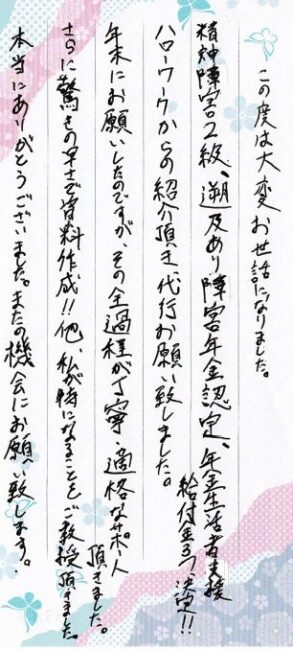 この度は大変お世話になりました。
精神障害2級、遡及あり障害年金認定、年金生活者支援
給付金3つ決定!!
ハローワークからの紹介頂き代行お願い致しました。
年末にお願いしたのですが、その全過程が丁寧、適格なサポート
頂きました。
さらに驚きの早さで資料作成!!他、私が特になることをご教授頂きました。
本当にありがとうございました。またの機会にお願い致します。